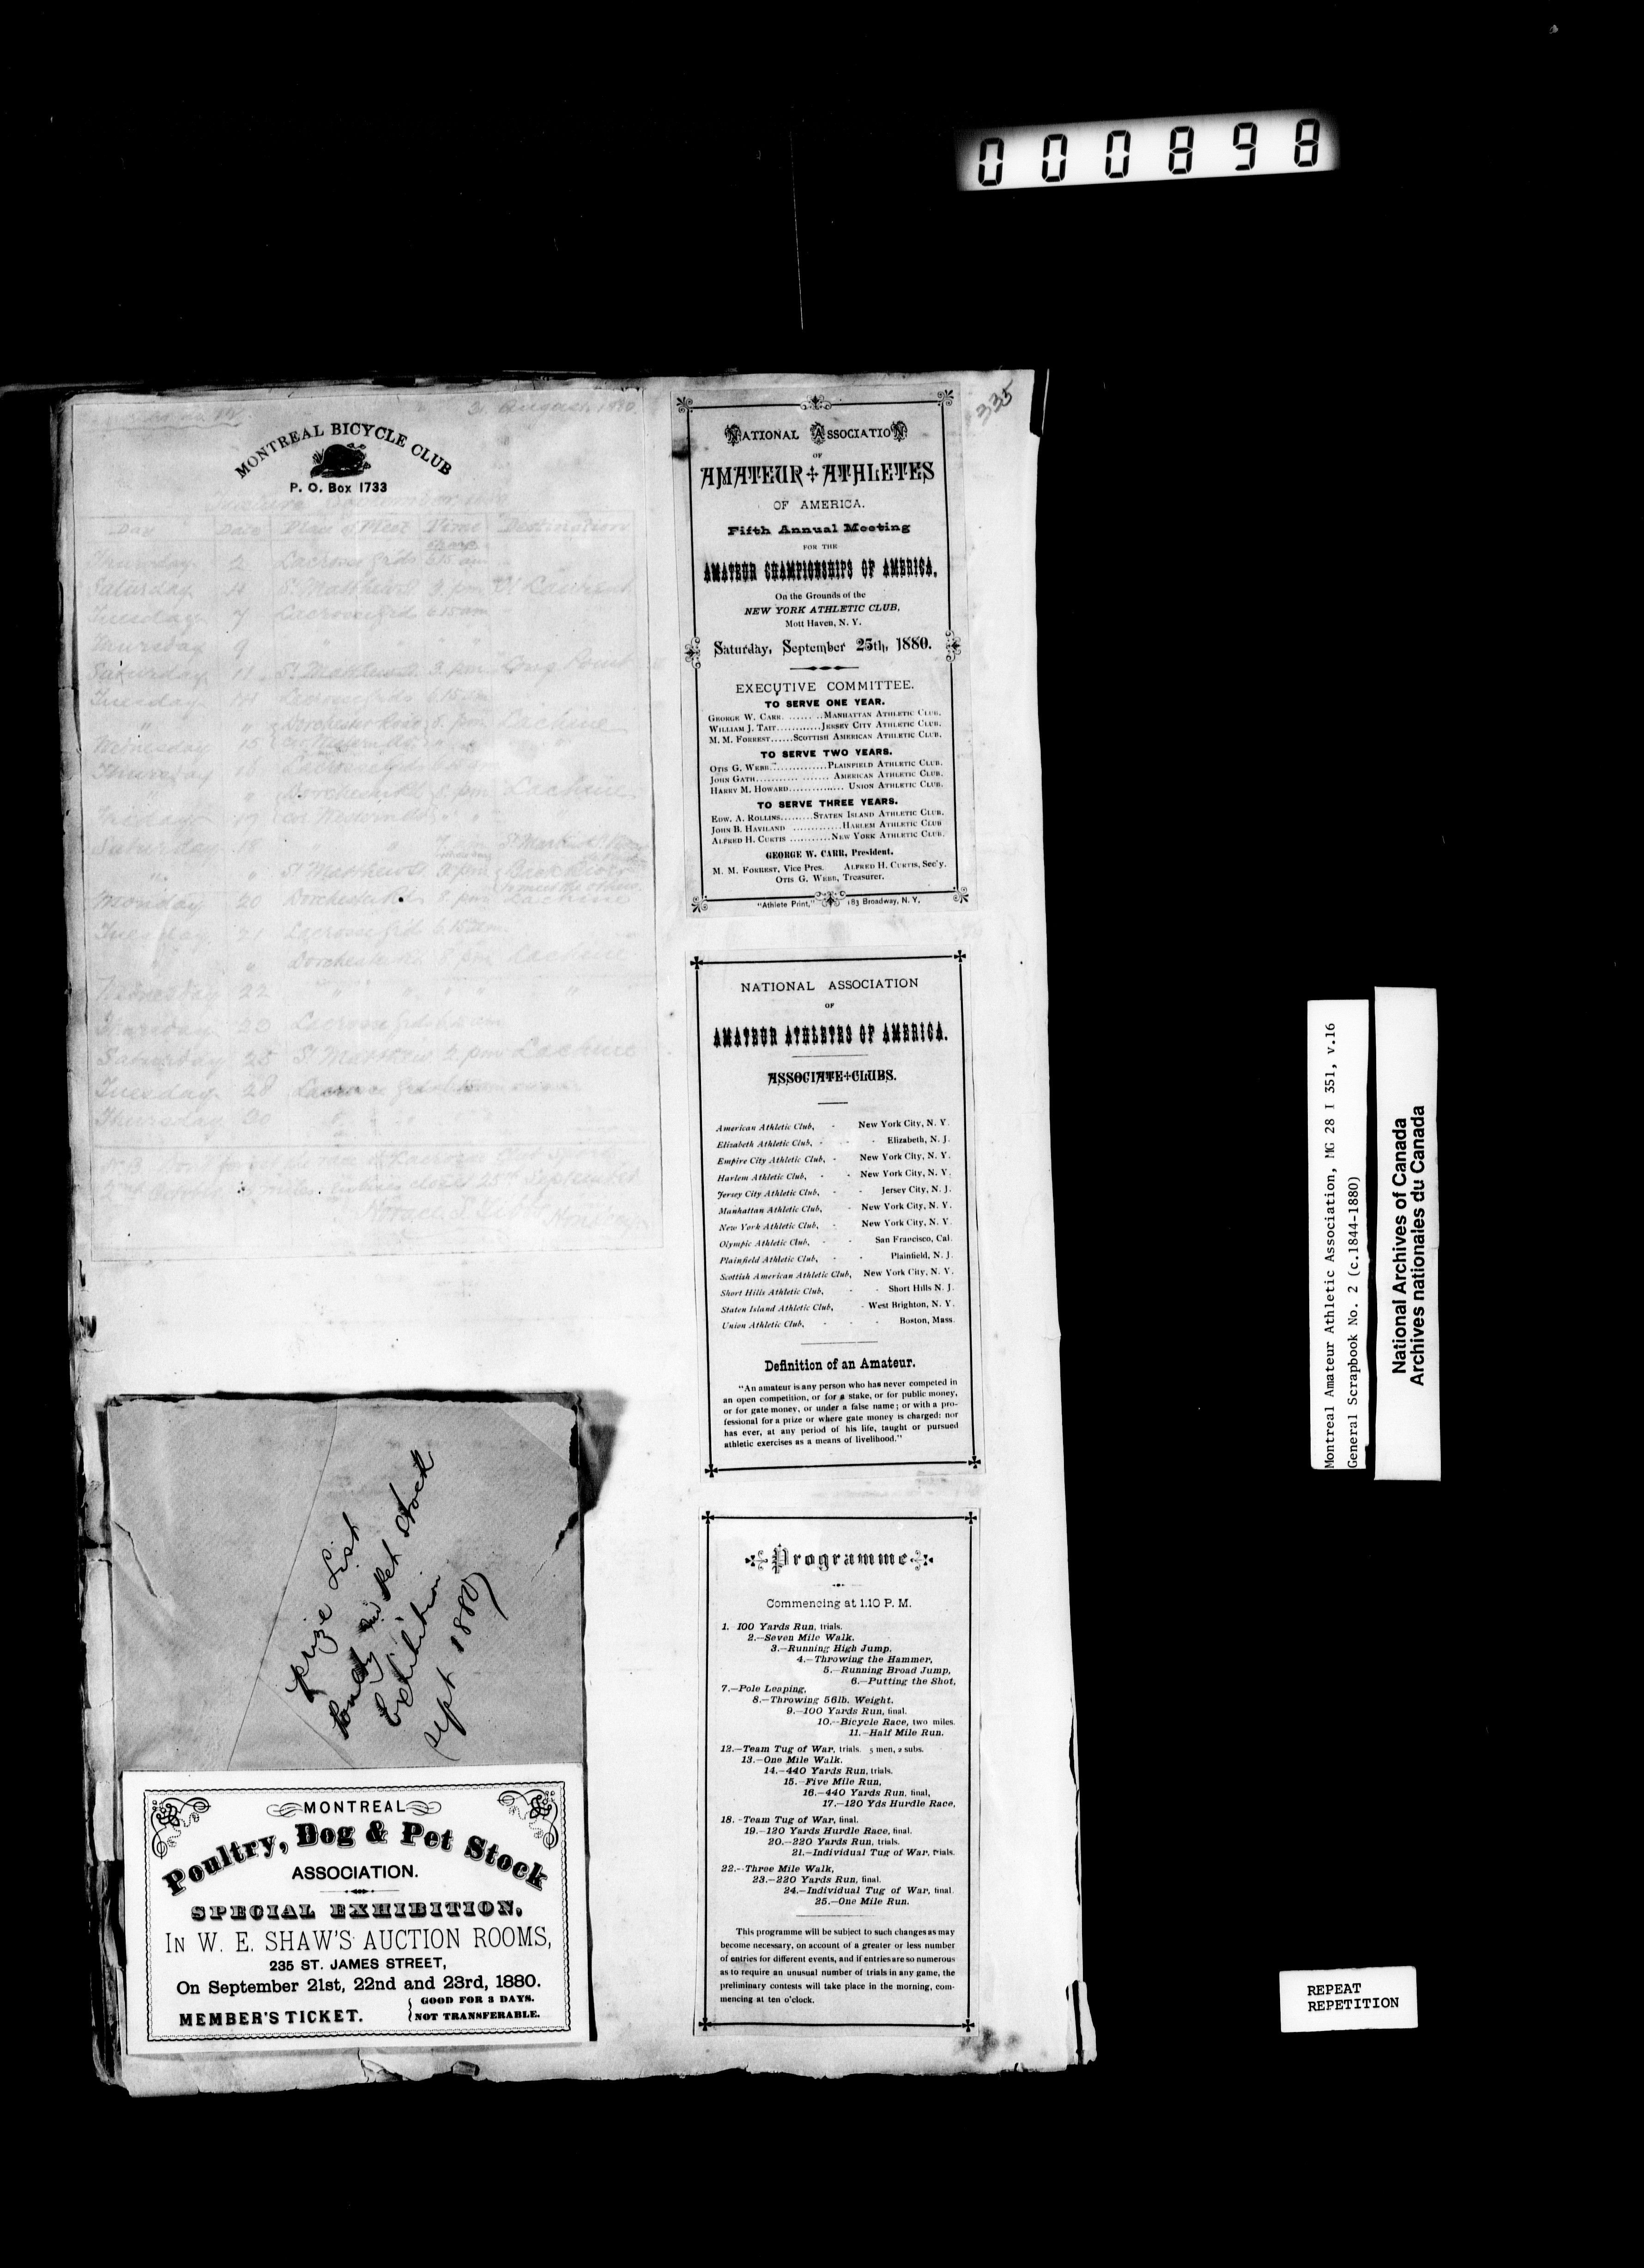 000898
31 August 1880
MONTREAL BICYCLE CLUB
P. O. Box 1733
Day Date Place of Meet Time Destination
sharp
Thursday 2 Lacrosse Grds 6.15 am
Saturday 4 St. Matthew St. 3. pm St Laurent
Tuesday 7 Lacrosse Grd 6.15 am
Thursday 9 " " " "
Saturday 11 St. Matthew St. 3. pm Long Point
Tuesday 14 Lacrosse Grds 6.15 am
" " Dorchester 8. pm Lachine
Wednesday 15 cor Western " "
Thursday 16 Lacrosse Grds 6.15 am
" " Dorchester 8. pm Lachine
Friday 17 cor Western " "
Saturday 18
" " St Matthew St 3. pm Back River
to meet the others
Monday 20 Dorchester Rd 8. pm Lachine
Tuesday 21 Lacrosse Grd 6.15 am
" Dorchester 8 pm Lachine
Wednesday 22 " " " " "
Thursday 23 Lacrosse Grds 6.15 am
Saturday 25 St Matthew 3 pm Lachine
Tuesday 28 Lacrosse Grds
Thursday 30 " "
N.B. Don't forget the race at Lacrosse Club Sports
2nd October miles. entries close 25th September
Horace S. Tibbs Hon Secy
335
NATIONAL ASSOCIATION
OF
AMATEUR ATHLETES
OF AMERICA.
Fifth Annual Meeting
FOR THE
AMATEUR CHAMPIONSHIPS OF AMERICA,
On the Grounds of the
NEW YORK ATHLETIC CLUB,
Mott Haven, N. Y.
Saturday, September 25th, 1880.
EXECUTIVE COMMITTEE.
TO SERVE ONE YEAR.
GEORGE W. CARR. ........MANHATTAN ATHLETIC CLUB.
WILLIAM J. TAIT............JERSEY CITY ATHLETIC CLUB.
M. M. FORREST......SCOTTISH AMERICAN ATHLETIC CLUB.
TO SERVE TWO YEARS.
OTIS G. WEBB...............PLAINFIELD ATHLETIC CLUB.
JOHN GATH........... ....... AMERICAN ATHLETIC CLUB.
HARRY M. HOWARD.............. UNION ATHLETIC CLUB.
TO SERVE THREE YEARS.
EDW. A. ROLLINS.........STATEN ISLAND ATHLETIC CLUB.
JOHN B. HAVILAND .............HARLEM ATHLETIC CLUB
ALFRED H. CURTIS ...........NEW YORK ATHLETIC CLUB.
GEORGE W. CARR, President.
M. M. FORREST, Vice Pres. ALFRED H. CURTIS, Sec'y.
OTIS G. WEBB, Treasurer.
"Athlete Print," 183 Broadway, N. Y.
NATIONAL ASSOCIATION
OF
AMATEUR ATHLETES OF AMERICA.
ASSOCIATE+CLUBS.
American Athletic Club, - New York City, N. Y.
Elizabeth Athletic Club, - - - Elizabeth, N. J.
Empire City Athletic Club, - New York City, N. Y.
Harlem Athletic Club, - - New York City, N. Y.
Jersey City Athletic Club, - - Jersey City, N. J.
Manhattan Athletic Club, - New York City, N. Y.
New York Athletic Club, - New York City, N. Y.
Olympic Athletic Club, - - San Francisco, Cal.
Plainfield Athletic Club, - - Plainfield, N. J.
Scottish American Athletic Club, New York City, N. Y.
Short Hills Athletic Club, - - Short Hills N. J.
Staten Island Athletic Club, - West Brighton, N. Y.
Union Athletic Club, - - - Boston, Mass.
Definition of an Amateur.
"An amateur is any person who has never competed in
an open competition, or for a stake, or for public money,
or for gate money, or under a false name; or with a pro-
fessional for a prize or where gate money is charged: nor
has ever, at any period of his life, taught or pursued
athletic exercises as a means of livelihood."
Programme
Commencing at 1.10 P. M.
1. 100 Yards Run, trials.
2.—Seven Mile Walk.
3.—Running High Jump,
4.—Throwing the Hammer,
5.—Running Broad Jump,
6.—Putting the Shot,
7.—Pole Leaping,
8.—Throwing 56lb. Weight.
9.—100 Yards Run, final.
10.—Bicycle Race, two miles.
11.—Half Mile Run.
12.—Team Tug of War, trials. 5 men, 2 subs.
13.—One Mile Walk.
14.—440 Yards Run, trials.
15.—Five Mile Run,
16.—440 Yards Run, final,
17.—120 Yds Hurdle Race,
18.—Team Tug of War, final.
19.—120 Yards Hurdle Race, final.
20.—220 Yards Run, trials.
21.—Individual Tug of War, trials.
22.—Three Mile Walk,
23.—220 Yards Run, final.
24.—Individual Tug of War, final.
25.—One Mile Run.
This programme will be subject to such changes as may
become necessary, on account of a greater or less number
of entries for different events, and if entries are so numerous
as to require an unusual number of trials in any game, the
preliminary contests will take place in the morning, com-
mencing at ten o'clock.
prize List
and Pet Stock
Exhibition
Sept 1880
MONTREAL
Poultry, Dog & Pet Stock
ASSOCIATION.
SPECIAL EXHIBITION,
IN W. E. SHAW'S AUCTION ROOMS,
235 ST. JAMES STREET,
On September 21st, 22nd and 23rd, 1880.
MEMBER'S TICKET. { GOOD FOR 3 DAYS.
NOT TRANSFERABLE.
Montreal Amateur Athletic Association, MG 28 I 351, v.16
General Scrapbook No. 2 (c.1844-1880)
National Archives of Canada
Archives nationales du Canada
REPEAT
REPETITION